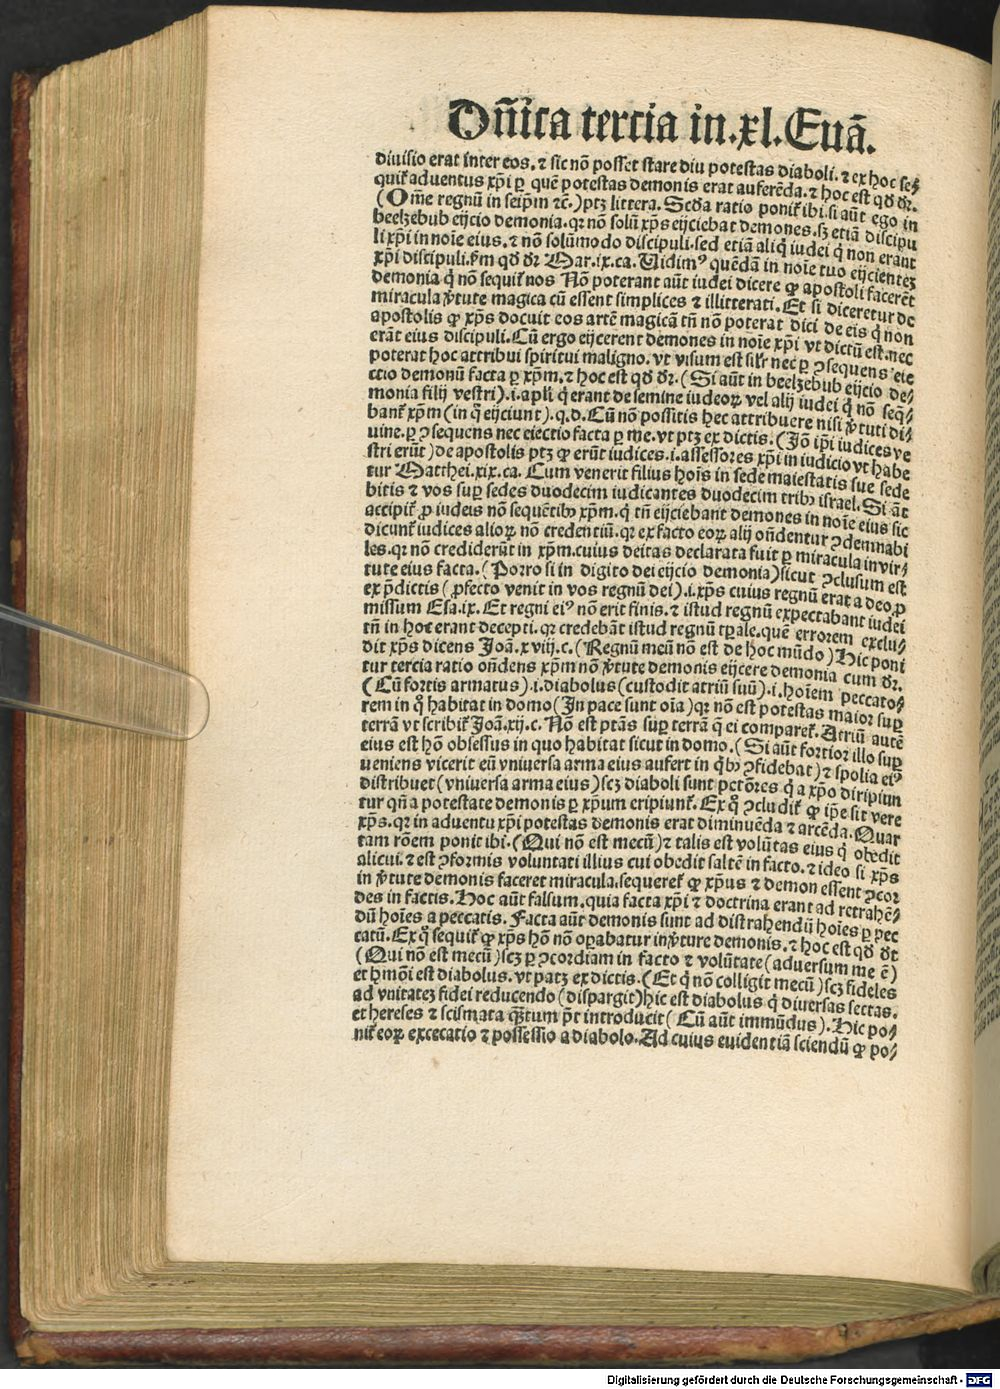 Dñica tercia in.xl.Euā.
diuisio erat inter eos.⁊ sic nō posset stare diu potestas diaboli.⁊ ex hoc se⸗
quit᷑ aduentus xp̄i ꝑ quē potestas demonis erat auferēda.⁊ hoc est qd̄ dr̄.
(Om̄e regnū in seip̄m ⁊c̄.)ptꝫ littera. Scd̄a ratio ponit᷑ ibi.si aūt ego in
beelzebub eijcio demonia.qr̄ nō solū xp̄s eijciebat demones.sꝫ etiā discipu
li xp̄i in noīe eius.⁊ nō solūmodo discipuli.sed etiā aliq̇ iudei q̇ non erant
xp̄i discipuli.ẜm qd̄ dr̄ Mar.ix.ca. Vidimꝰ quēdā in noīe tuo eijcientez
demonia q̇ nō sequit᷑ nos Nō poterant aūt iudei dicere ꝙ apostoli facerēt
miracula v̓tute magica cū essent simplices ⁊ illitterati. Et si diceretur de
apostolis ꝙ xp̄s docuit eos artē magicā tn̄ nō poterat dici de eis q̇ non
erāt eius discipuli. Cū ergo eijcerent demones in noīe xp̄i vt dictū est.nec
poterat hoc attribui spiritui maligno.vt visum est sil̓r nec ꝑ ꝯsequens eie
ctio demonū facta ꝑ xp̄m.⁊ hoc est qd̄ dr̄.(Si aūt in beelzebub eijcio de⸗
monia filij vestri).i.apl̓i q̇ erant de semine iudeoꝝ vel alij iudei q̇ nō seq̄⸗
bant᷑ xp̄m (in q̄ eijciunt).q.d. Cū nō possitis hec attribuere nisi v̓tuti di⸗
uine.ꝑ ꝯsequens nec eiectio facta ꝑ me.vt ptꝫ ex dictis.(Iō ip̄i iudices ve
stri erūt)de apostolis ptꝫ ꝙ erūt iudices.i.assessores xp̄i in iudicio vt habe
tur Matthei.xix.ca. Cum venerit filius hoīs in sede maiestatis sue sede
bitis ⁊ vos suꝑ sedes duodecim iudicantes duodecim tribꝰ israel. Si āt
accipit᷑ ꝓ iudeis nō sequētibꝰ xp̄m.q̇ tn̄ eijciebant demones in noīe eius sic
dicunt᷑ iudices alioꝝ nō credentiū.qr̄ ex facto eoꝝ alij on̄dentur ꝯdemnabi
les.qr̄ nō crediderūt in xp̄m.cuius deitas declarata fuit ꝑ miracula in vir⸗
tute eius facta.(Porro si in digito dei eijcio demonia)sicut ꝯclusum est
ex p̄dictis (ꝓfecto venit in vos regnū dei).i.xp̄s cuius regnū erat a deo ꝓ
missum Esa.ix. Et regni eiꝰ nō erit finis.⁊ istud regnū expectabant iudei
tn̄ in hoc erant decepti.qr̄ credebāt istud regnū tp̄ale.quē errorem exclu⸗
dit xp̄s dicens Joā.xviij.c.(Regnū meū nō est de hoc mūdo) Hic poni
tur tercia ratio on̄dens xp̄m nō v̓tute demonis eijcere demonia cum dr̄.
(Cū fortis armatus).i.diabolus(custodit atriū suū).i.hoīem peccato⸗
rem in q̊ habitat in domo(In pace sunt oīa)qr̄ nō est potestas maior suꝑ
terrā vt scribit᷑ Joā.xij.c. Nō est ptās suꝑ terrā q̄ ei comparet᷑. Atriū autē
eius est hō obsessus in quo habitat sicut in domo.(Si aūt fortior illo suꝑ
ueniens vicerit eū vniuersa arma eius aufert in q̇bꝰ ꝯfidebat)⁊ spolia eiꝰ
distribuet(vniuersa arma eius)scꝫ diaboli sunt pctōres q̇ a xp̄o diripiun
tur qn̄ a potestate demonis ꝑ xp̄um eripiunt᷑. Ex q̊ ꝯcludit᷑ ꝙ ip̄e sit vere
xp̄s.qr̄ in aduentu xp̄i potestas demonis erat diminuēda ⁊ arcēda. Quar
tam rōem ponit ibi.(Qui nō est mecū)⁊ talis est volūtas eius q̇ obedit
alicui.⁊ est ꝯformis voluntati illius cui obedit saltē in facto.⁊ ideo si xp̄s
in v̓tute demonis faceret miracula.sequeret᷑ ꝙ xp̄us ⁊ demon essent ꝯcor
des in factis. Hoc aūt falsum.quia facta xp̄i ⁊ doctrina erant ad retrahē⸗
dū hoīes a peccatis. Facta aūt demonis sunt ad distrahendū hoīes ꝑ pec
catū. Ex q̊ sequit᷑ ꝙ xp̄s hō nō oꝑabatur in v̓ture demonis.⁊ hoc est qd̄ dt̄
(Qui nō est mecū)scꝫ ꝑ ꝯcordiam in facto ⁊ volūtate(aduersum me ē)
et hmōi est diabolus.vt patꝫ ex dictis.(Et q̇ nō colligit mecū)scꝫ fideles
ad vnitateꝫ fidei reducendo(dispargit)hic est diabolus q̇ diuersas sectas.
et hereses ⁊ scismata qꝫtum p̄t introducit(Cū aūt immūdus). Hic po⸗
nit᷑ eoꝝ excecatio ⁊ possessio a diabolo. Ad cuius euidentiā sciendū ꝙ po⸗
Digitalisierung gefördert durch die Deutsche Forschungsgemeinschaft - DFG